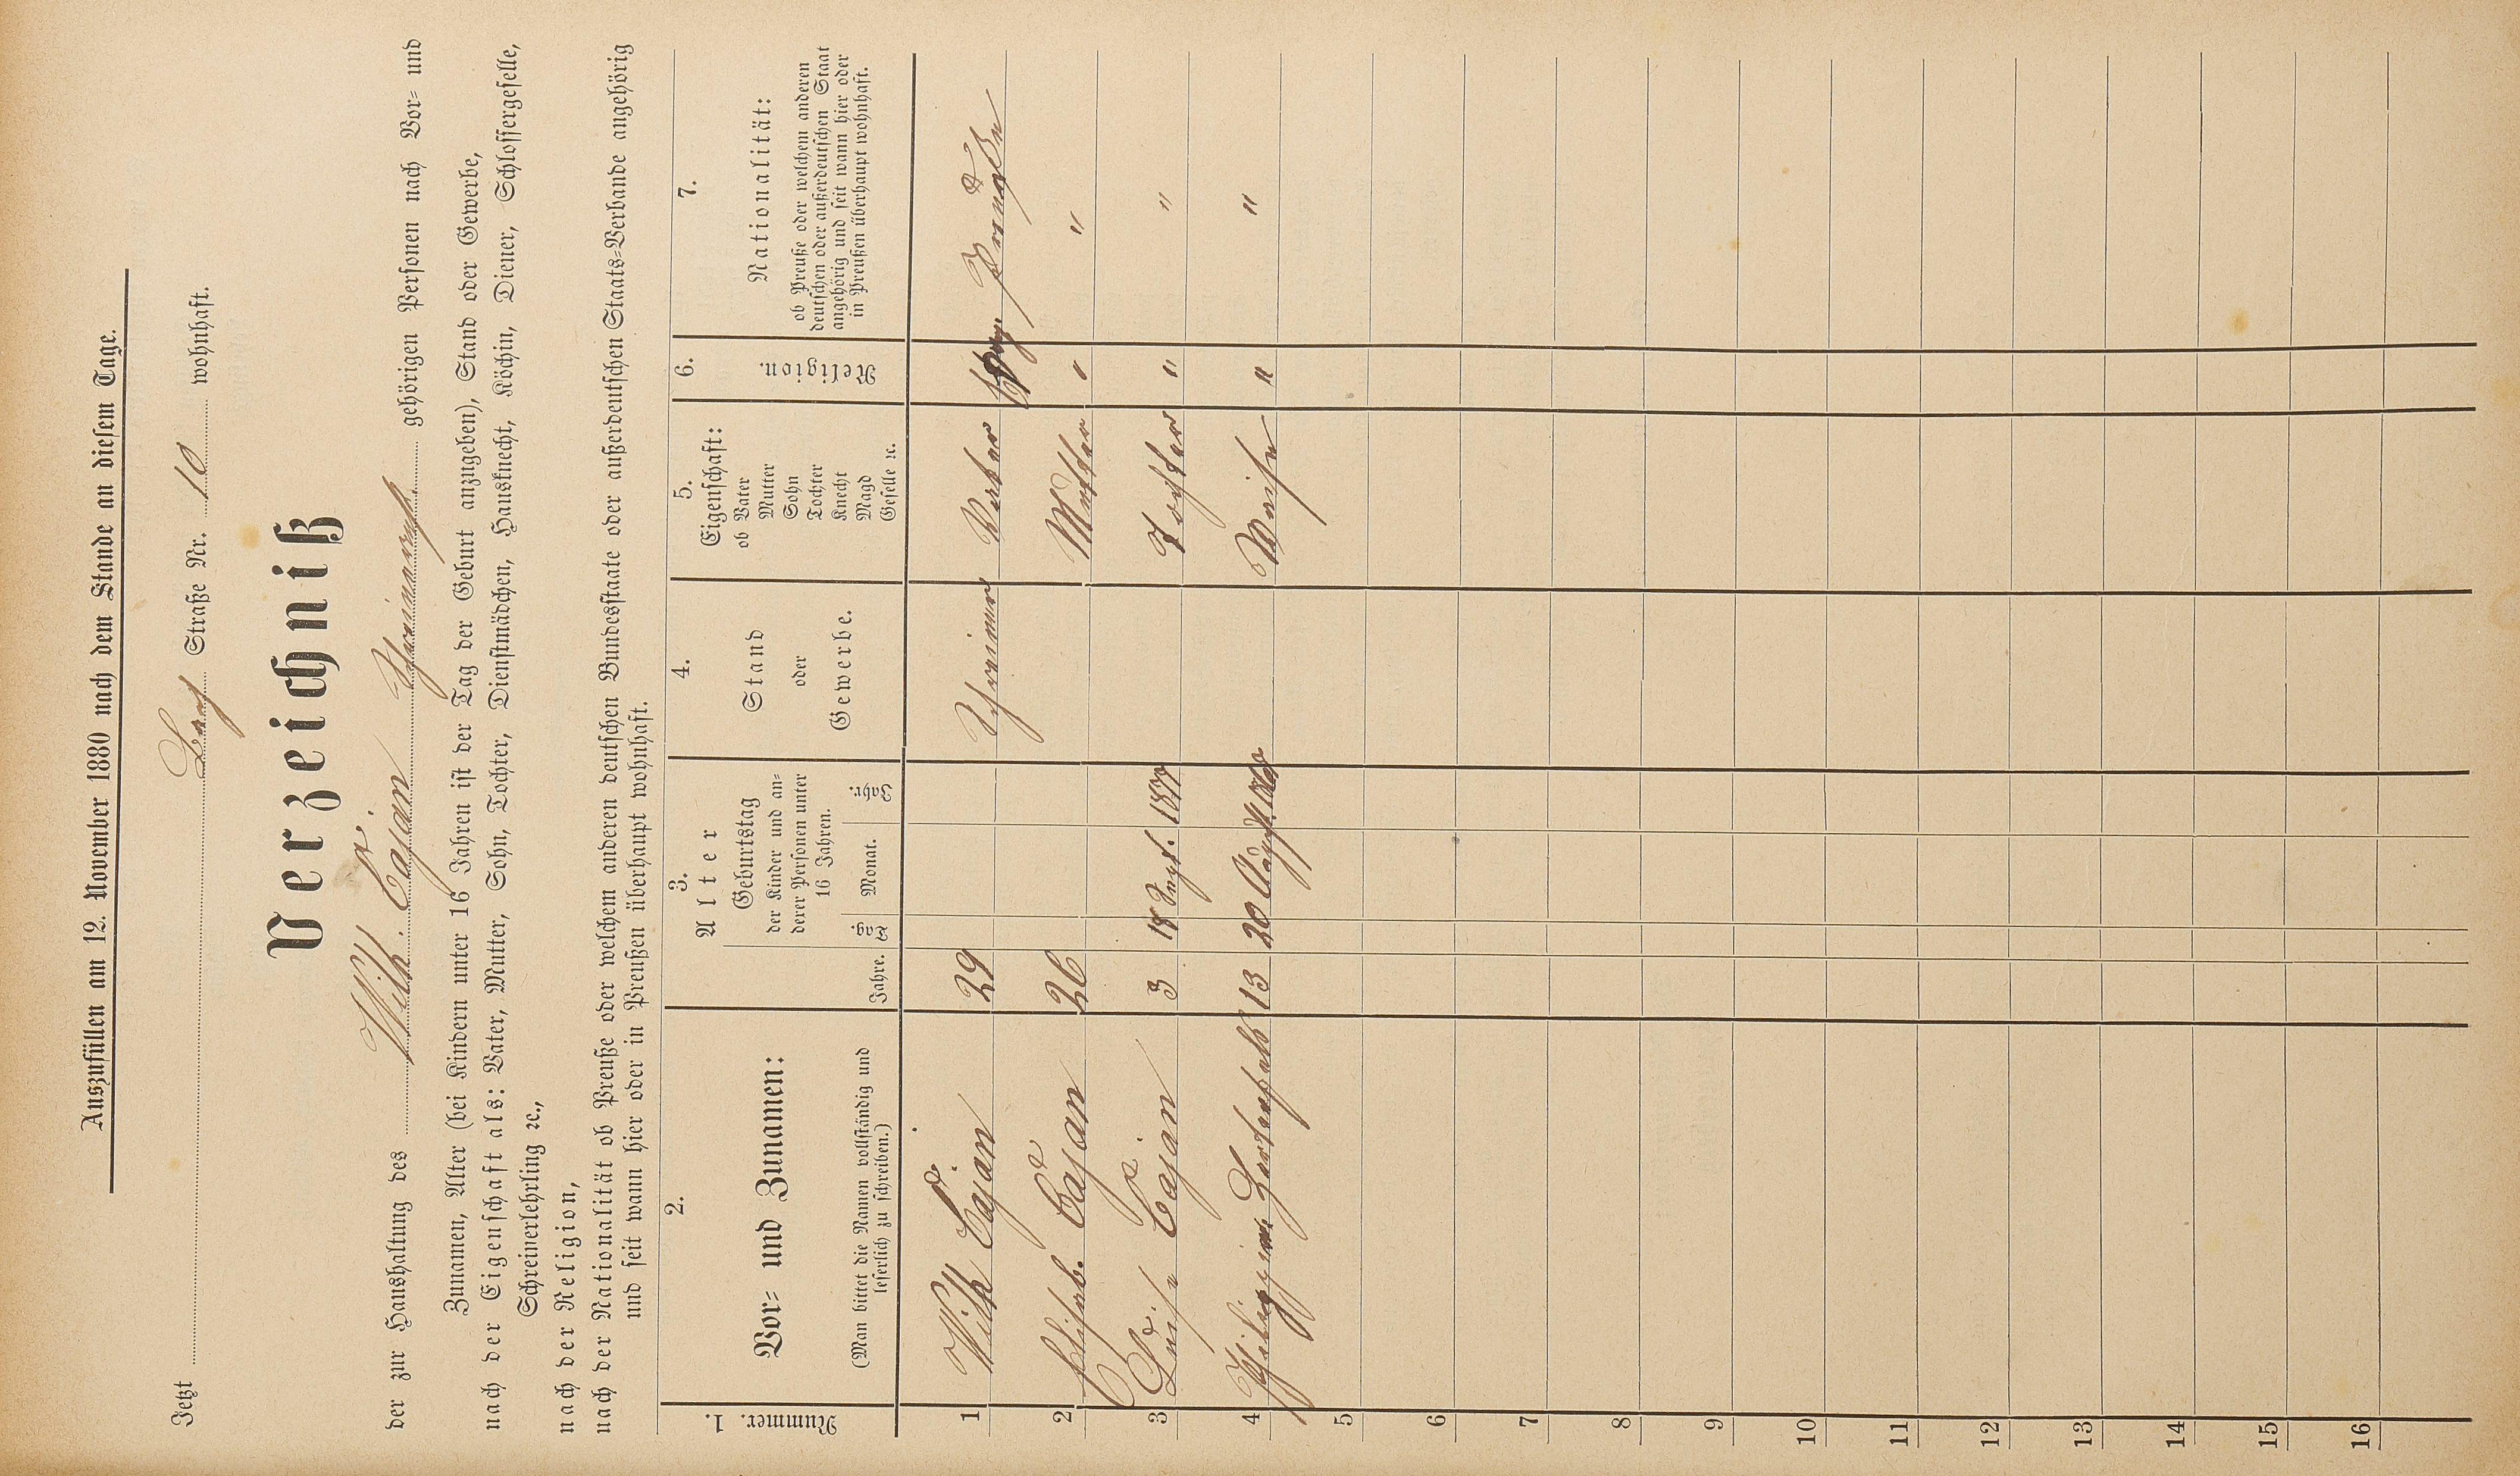 Auszufüllen am 12. November 1880 nach dem Stande an diesem Tage.
Jetzt Bach Straße Nr. 10 wohnhaft.
Verzeichniß
der zur Haushaltung des Wilh. Cajan gehörigen Personen nach Vor- und
Zunamen, Alter (bei Kindern unter 16 Jahren ist der Tag der Geburt anzugeben), Stand oder Gewerbe,
nach der Eigenschaft als: Vater, Mutter, Sohn, Tochter, Dienstmädchen, Hausknecht, Köchin, Diener, Schlossergeselle,
Schreinerlehrling ꝛc.,
nach der Religion,
nach der Nationalität ob Preuße oder welchem anderen deutschen Bundesstaate oder außerdeutschen Staats-Verbande angehörig
und seit wann hier oder in Preußen überhaupt wohnhaft.
1. 2. 3. 4. 5. 6. 7.
Nummer.
Vor- und Zunamen:
(Man bittet die Namen vollständig und
leserlich zu schreiben.)
Alter
Jahre.
Geburtstag
der Kinder und an-
derer Personen unter
16 Jahren.
Tag. Monat. Jahr.
Stand
oder
Gewerbe.
Eigenschaft:
ob Vater
Mutter
Sohn
Tochter
Knecht
Magd
Geselle ꝛc.
Religion.
Nationalität:
ob Preuße oder welchem anderen
deutschen oder außerdeutschen Staat
angehörig und seit wann hier oder
in Preußen überhaupt wohnhaft.
1 Wilh Cajan 29 Schreiner Vater Evg. Preuße
2 Elisab. Cajan 26 Mutter " "
3 Luise Cajan 3 18 Sept. 1877 Tochter " "
4 13 20 August 1867 Waise " "
5
6
7
8
9
10
11
12
13
14
15
16